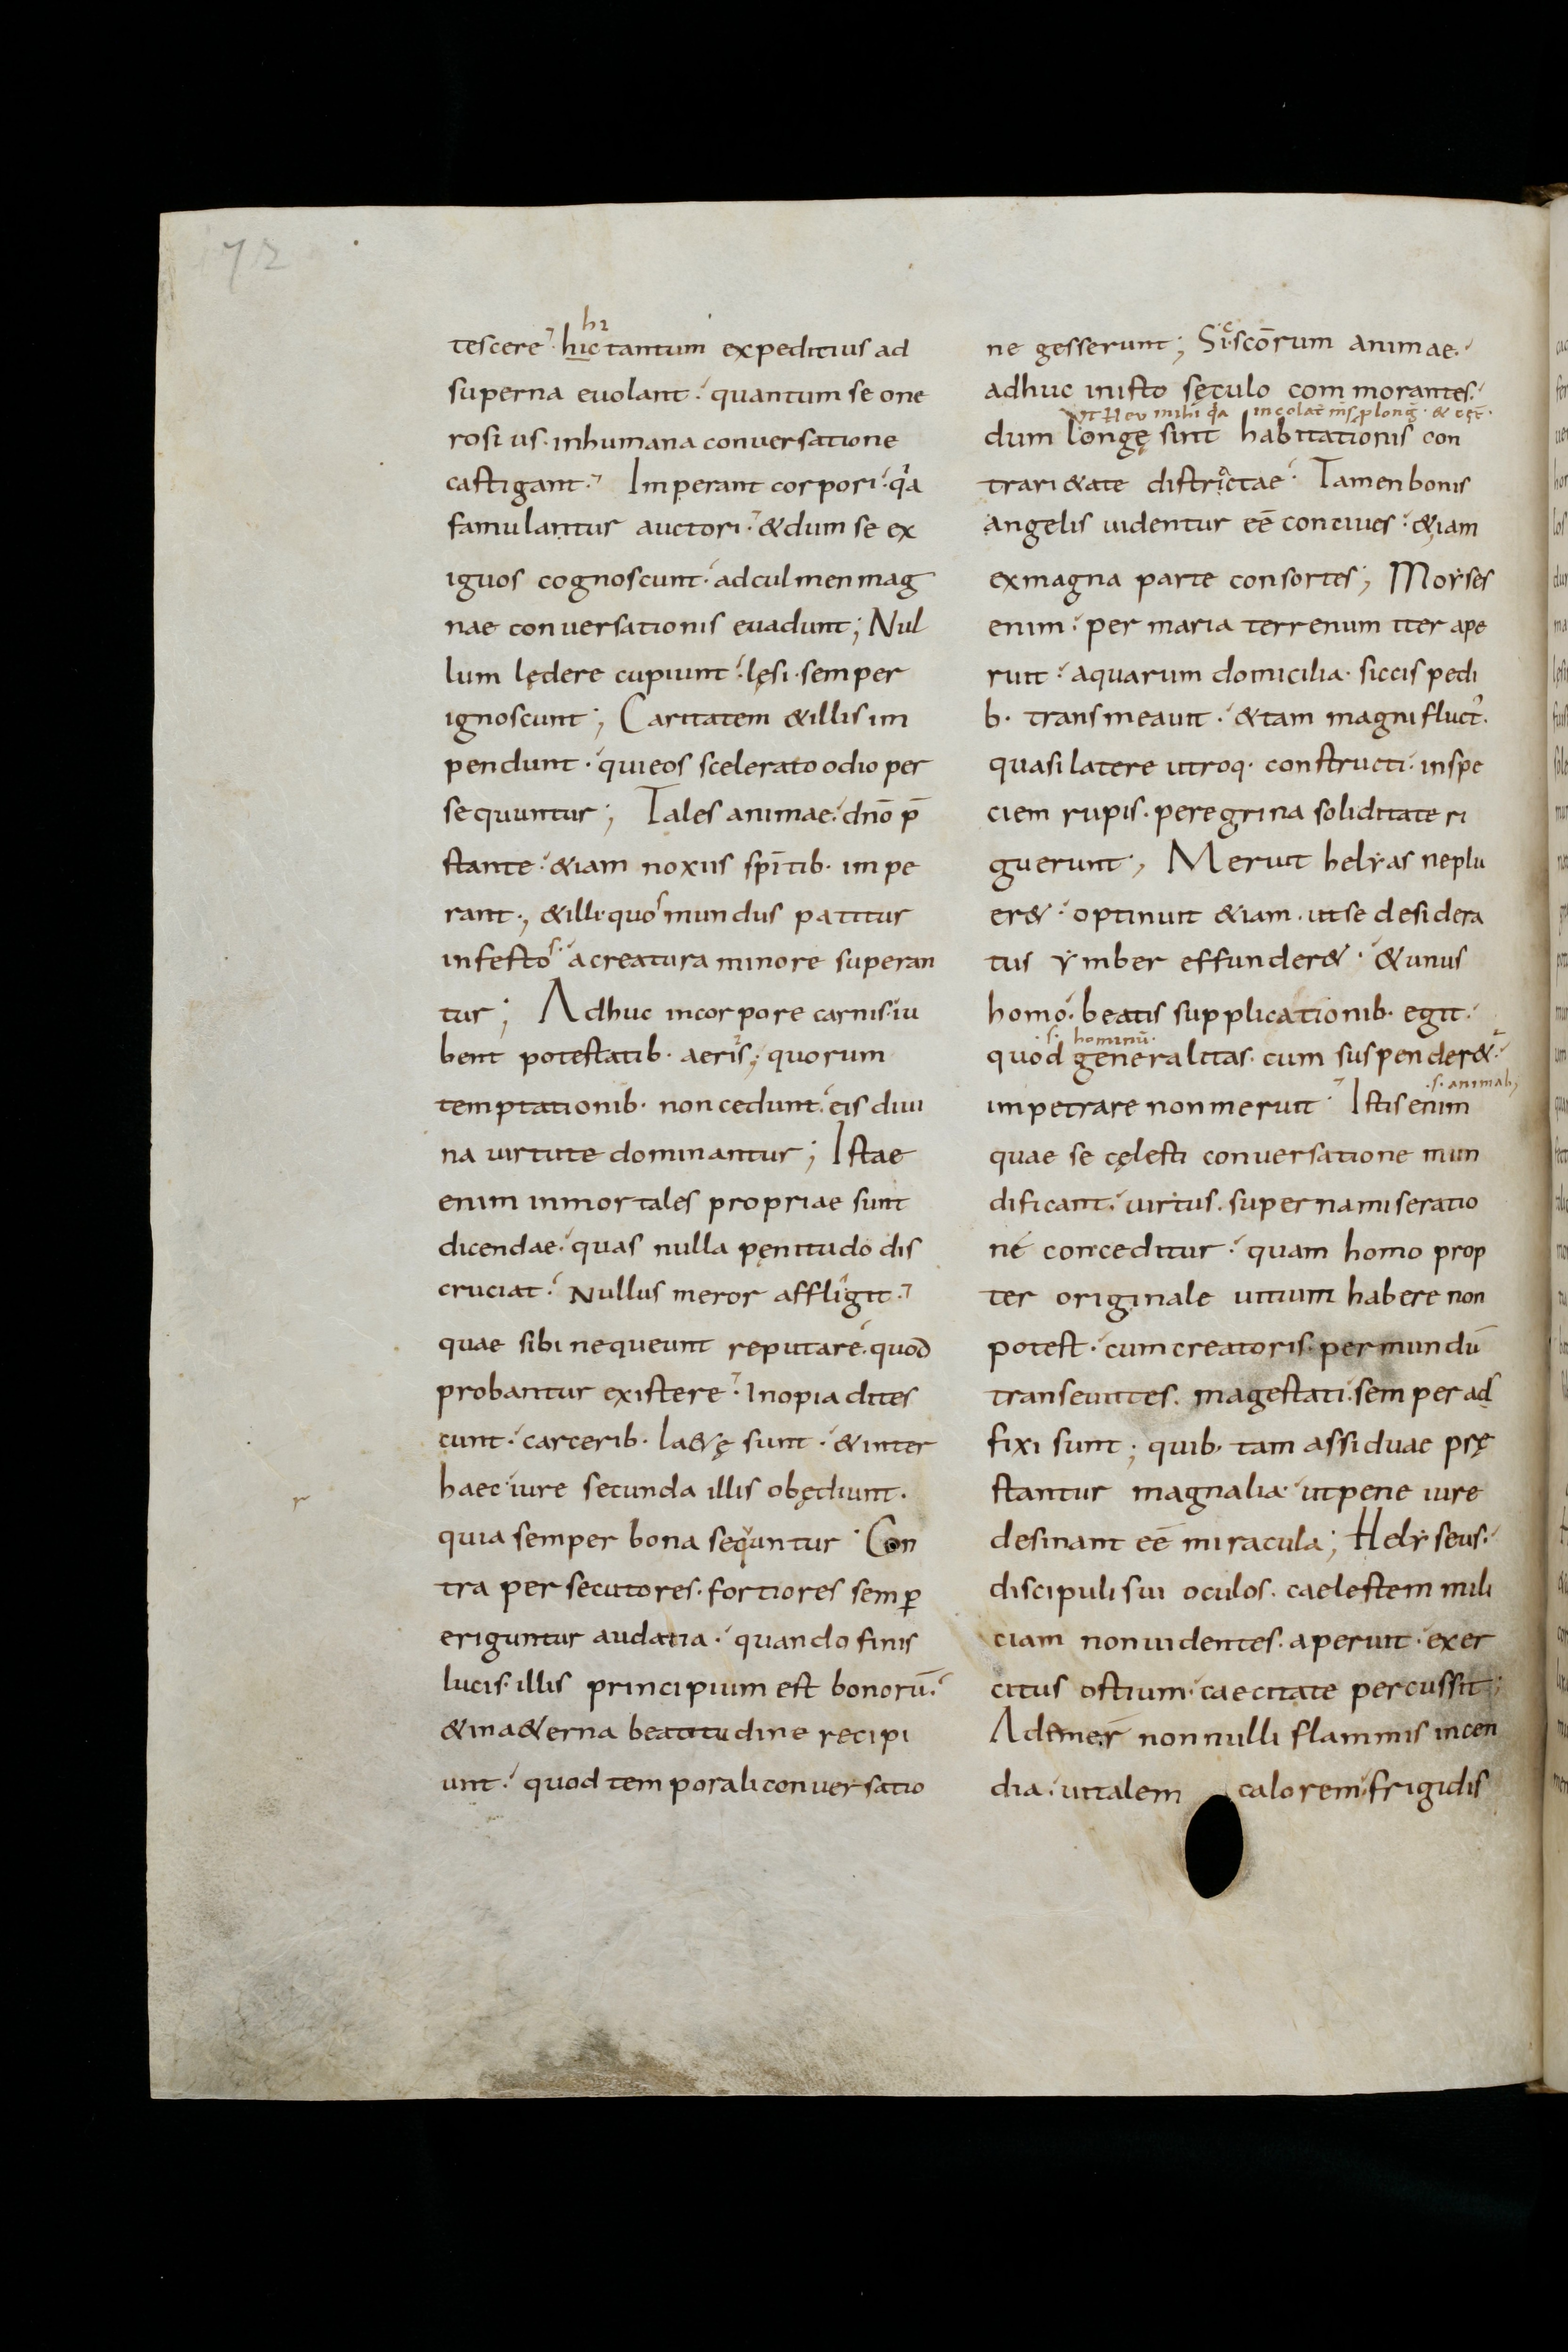 172
h2
tescere · hic tantum expeditius ad
superna euolant · quantum se one
rosius · inhumana conuersatione
castigant · Imperant corpori · qa
famulantur auctori · & dum se ex
iguos cognoscunt · ad culmen mag
nae conuersationis euadunt ; Nul
lum lędere cupiunt · lęsi · semper
ignoscunt ; Caritatem & illis im
pendunt · qui eos scelerato odio per
sequuntur ; Tales animae · dn̄o p̄
stante · &iam noxiis sp̄itib · impe
rant · , & illi · quos mundus patitur
infestos · a creatura minore superan
tur ; Adhuc in corpore carnis · iu
bent potestatib · aeris ; quorum
temptationib · non cedunt · eis diui
na uirtute dominantur ; Istae
enim inmortales propriae sunt
dicendae · quas nulla pęnitudo dis
cruciat · Nullus meror affligit ·
quae sibi nequeunt reputare · quod
probantur existere · Inopia dites
cunt · carcerib · la&ę sunt · & inter
haec iure secunda illis obędiunt ·
quia semper bona sequntur · Con
tra persecutores · fortiores semp̄
eriguntur audatia · quando finis
lucis · illis principium est bonorū ·
& in a&erna beatitudine recipi
unt · quod temporali conuersatio
r
ne gesserunt ; Sic sc̄orum animae ·
adhuc in isto sęculo commorantes ·
ut Heu mihi qa incolat̄ ms̄ plonḡ · & cęt̄ ·
dum longę sint habitationis con
trari&ate districtae · Tamen bonis
angelis uidentur eē conciues · &iam
ex magna parte consortes ; Moẏses
enim · per maria terrenum iter ape
ruit · aquarum domicilia · siccis pedi
b · transmeauit · & tam magni fluct' ·
quasi latere utroq · constructi · in spe
ciem rupis · peregrina soliditate ri
guerunt · , Meruit helẏas ne plu
er& · optinuit &iam · ut se desidera
tus ẏmber effunder& · & unus
homo · beatis supplicationib · egit ·
· s · hominū ·
quod generalitas · cum suspender& ·
· s · animab;
impetrare non meruit · Istis enim
quae se cęlesti conuersatione mun
dificant · uirtus · superna miseratio
ne conceditur · quam homo prop
ter originale uitium habere non
potest · cum creatoris · per mundū
transeuntes · magestati · semper ad
fixi sunt ; quib · tam assiduae prę
stantur magnalia · ut pene iure
desinant eē miracula ; Helẏseus ·
discipuli sui oculos · caelestem mili
ciam non uidentes · aperuit · exer
citus ostium · caecitate percussit ;
nonnulli flammis incen
dia · ut talem calorem · frigidis